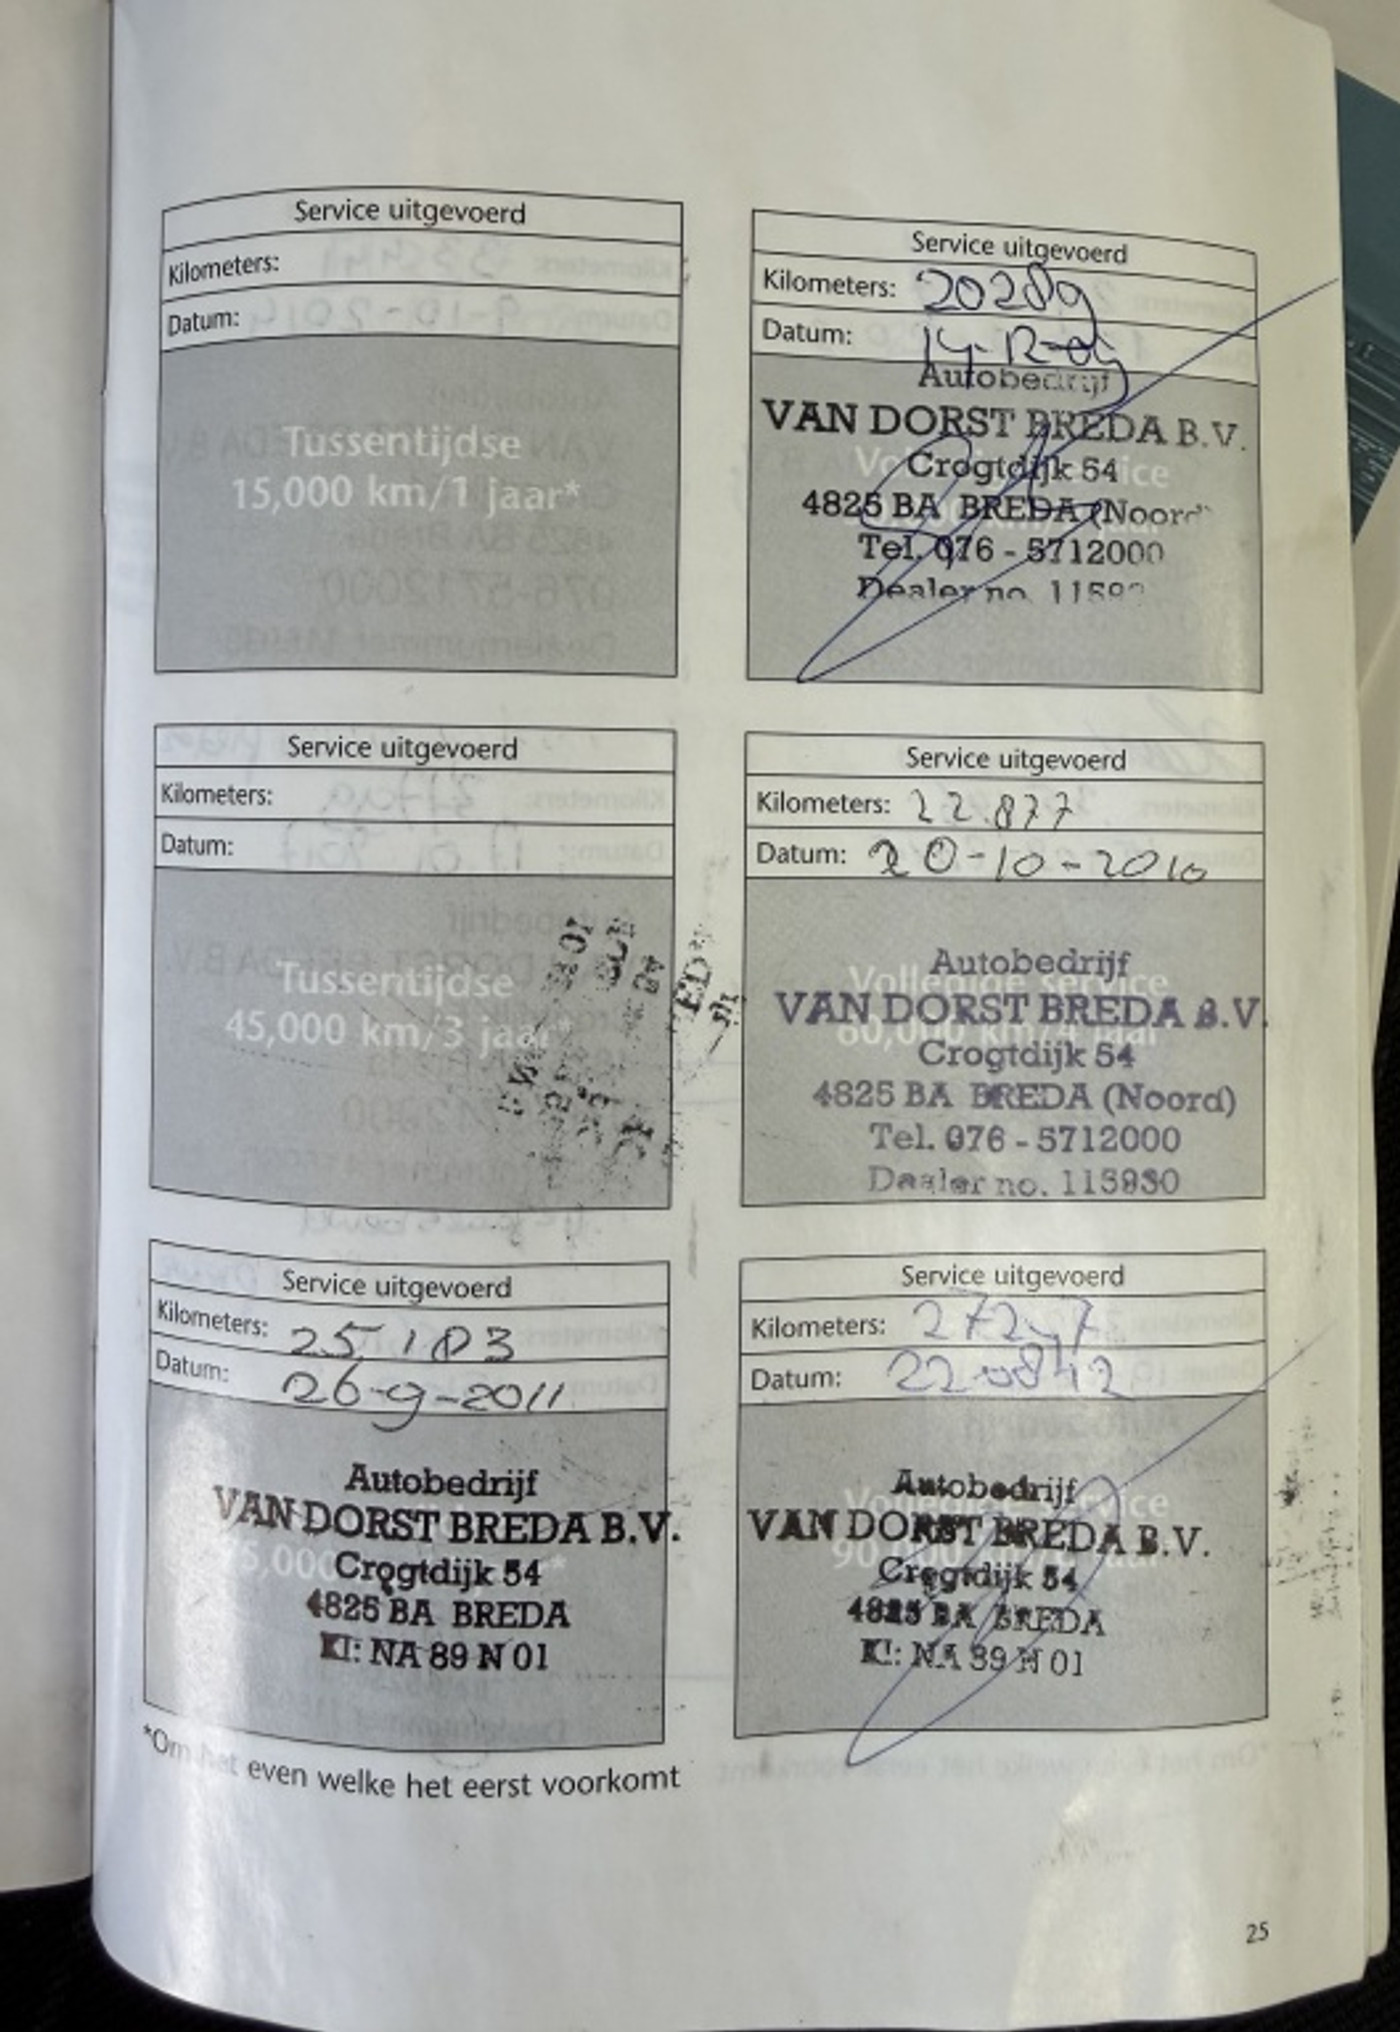 Service uitgevoerd
Kilometers:
Datum:
Tussentijdse
15,000 km/1 jaar*
Service uitgevoerd
Kilometers: 20289
Datum: 14-12-09
Autobedrijf
VAN DORST BREDA B.V.
Crogtdijk 54
4825 BA BREDA (Noord)
Tel. 076 - 5712000
Dealer no.
Service uitgevoerd
Kilometers:
Datum:
Tussentijdse
45,000 km/3 jaar*
Service uitgevoerd
Kilometers: 22.877
Datum: 20-10-2010
Volledige service
60,000 km/4 jaar
Autobedrijf
VAN DORST BREDA B.V.
Crogtdijk 54
4825 BA BREDA (Noord)
Tel. 076 - 5712000
Dealer no. 115930
Service uitgevoerd
Kilometers: 25.183
Datum: 26-9-2011
Autobedrijf
VAN DORST BREDA B.V.
Crogtdijk 54
4825 BA BREDA
KI: NA 89 N 01
Service uitgevoerd
Kilometers:
Datum: 22-08-12
Volledige service
Autobedrijf
VAN DORST BREDA B.V.
Crogtdijk 54
4825 BA BREDA
KI: NA 89 N 01
*Om het even welke het eerst voorkomt
25